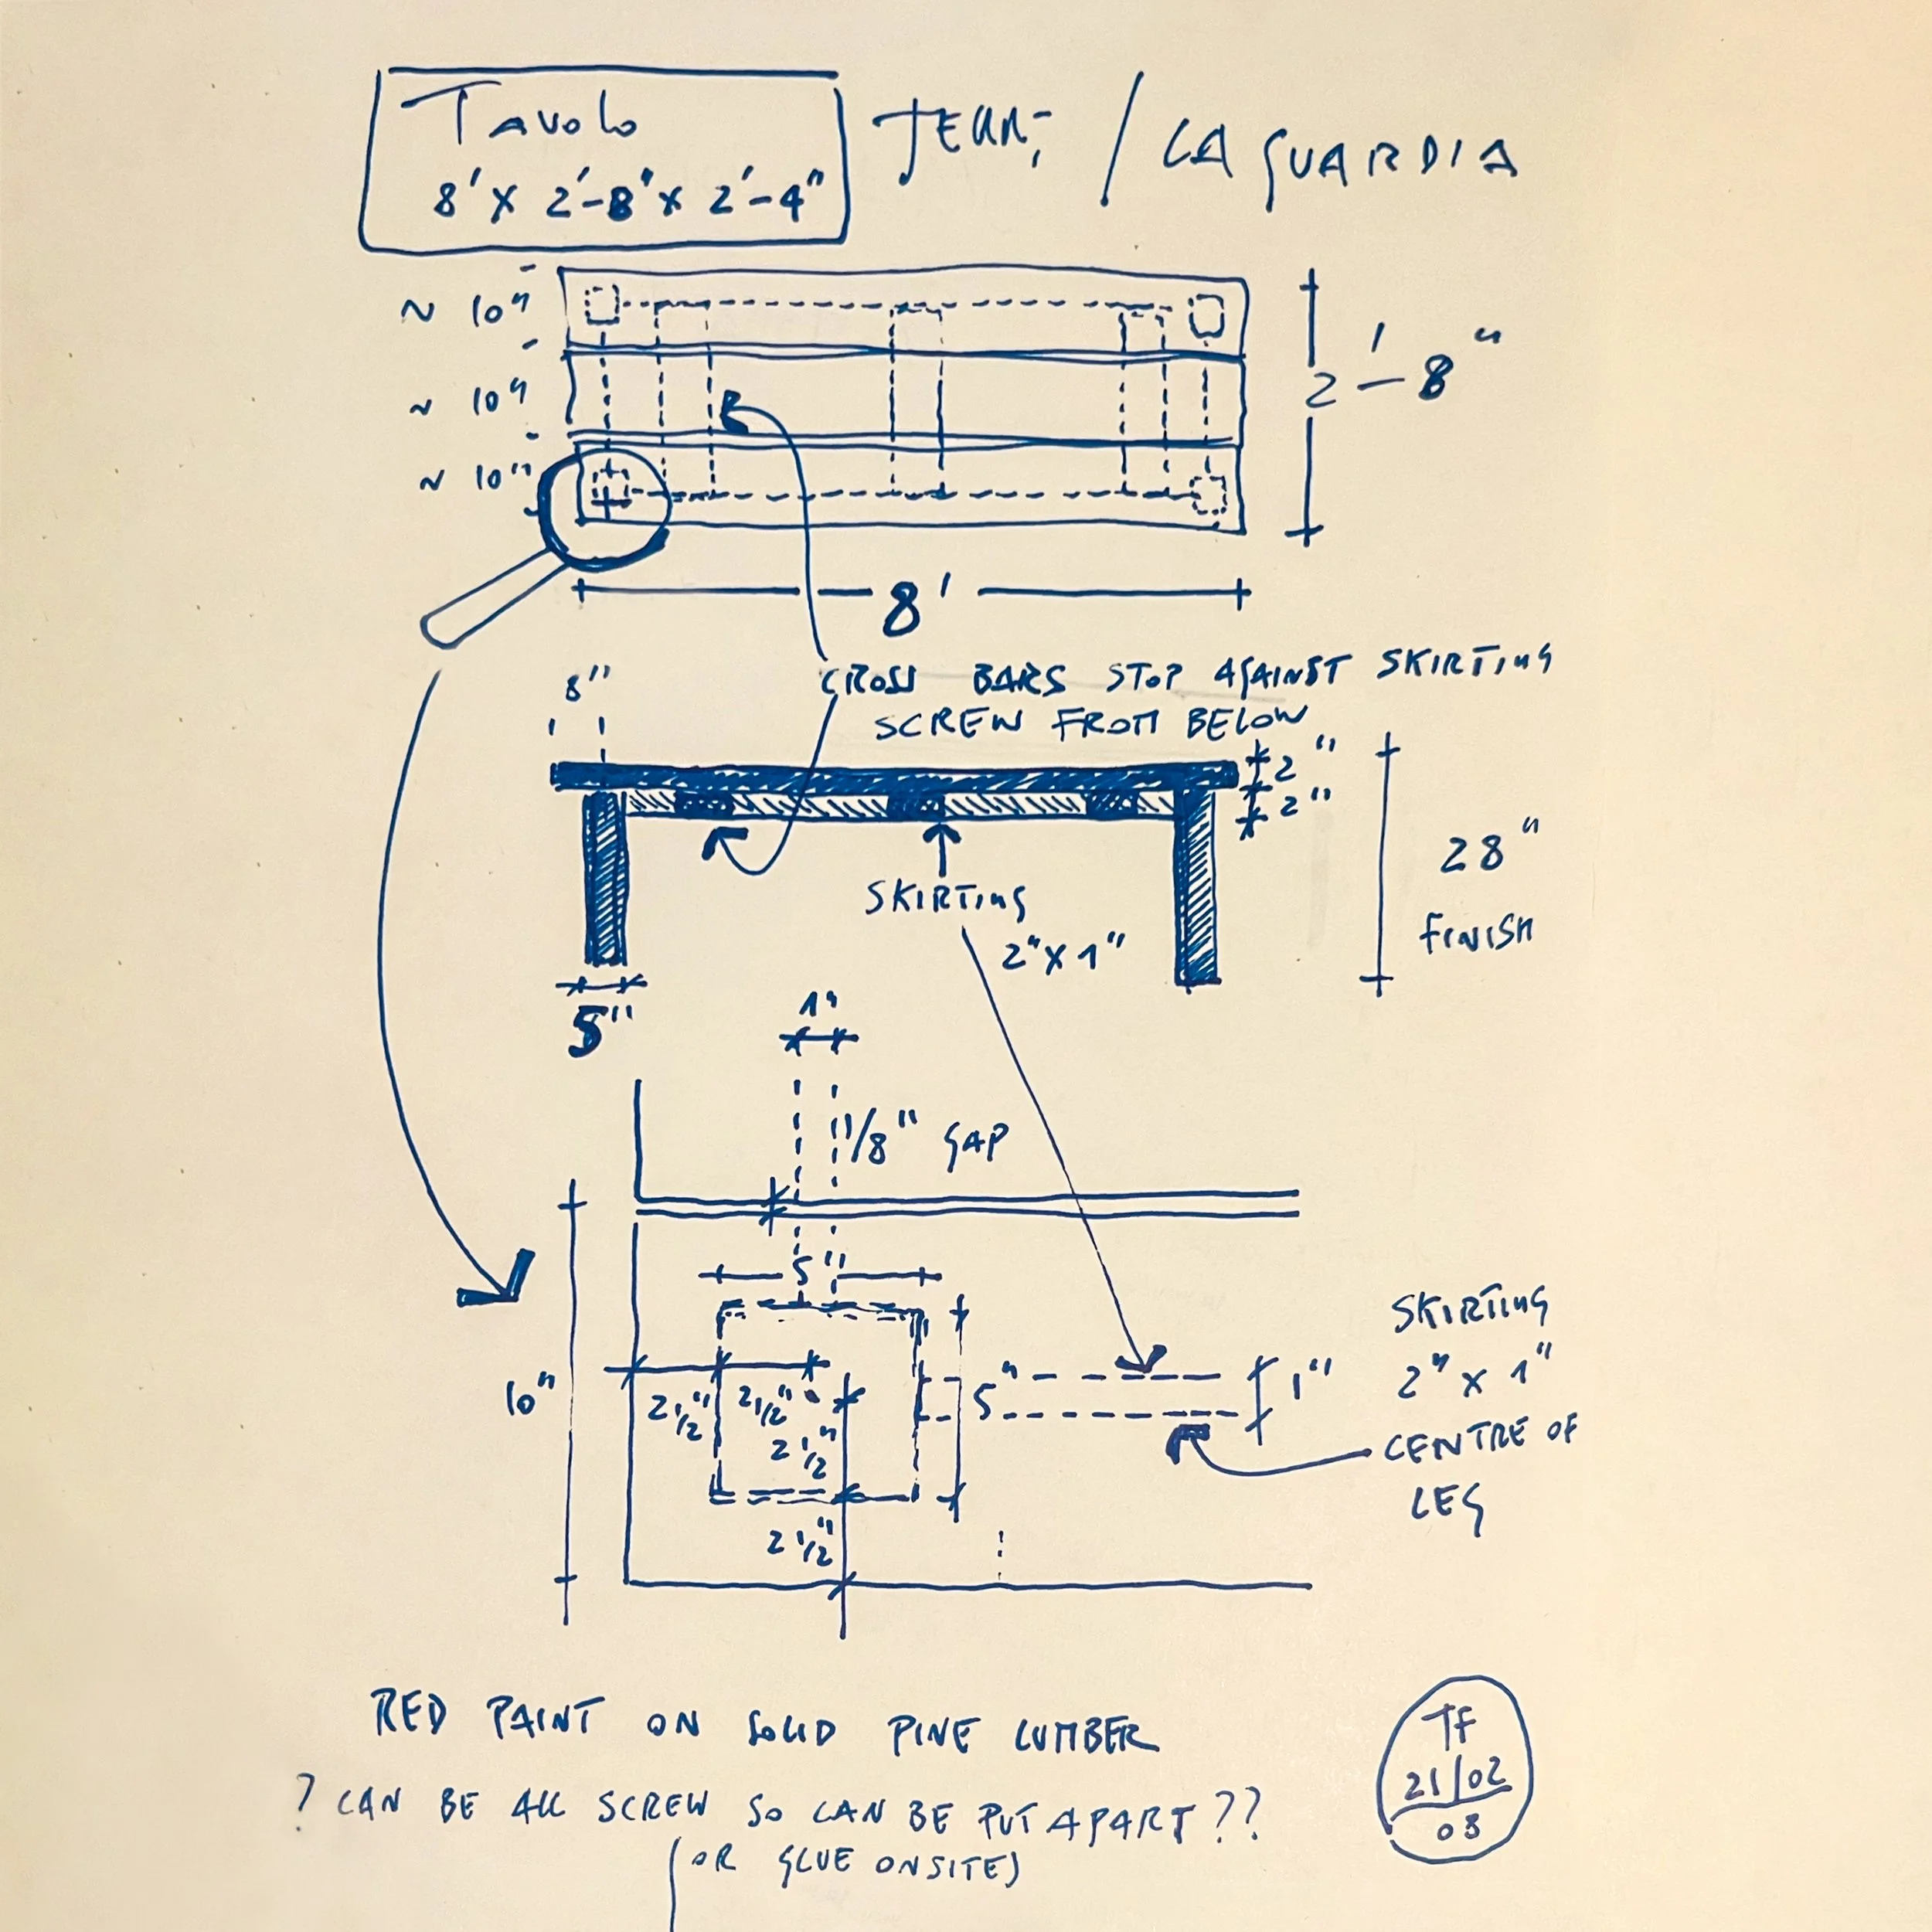 Tavolo
8' x 2'-8" x 2'-4"
/ LA GUARDIA
~ 10"
~ 10"
~ 10"
2'-8"
8'
8"
CROSS BARS STOP AGAINST SKIRTING
SCREW FROM BELOW
2"
2"
28"
FINISH
SKIRTING
2" x 1"
5"
1"
1/8" GAP
5"
10"
2 1/2"
2 1/2"
2 1/2"
5"
1"
2 1/2"
SKIRTING
2" x 1"
CENTRE OF
LEG
RED PAINT ON SOLID PINE LUMBER
? CAN BE ALL SCREW SO CAN BE PUT APART ??
(OR GLUE ONSITE)
TF
21/02
03